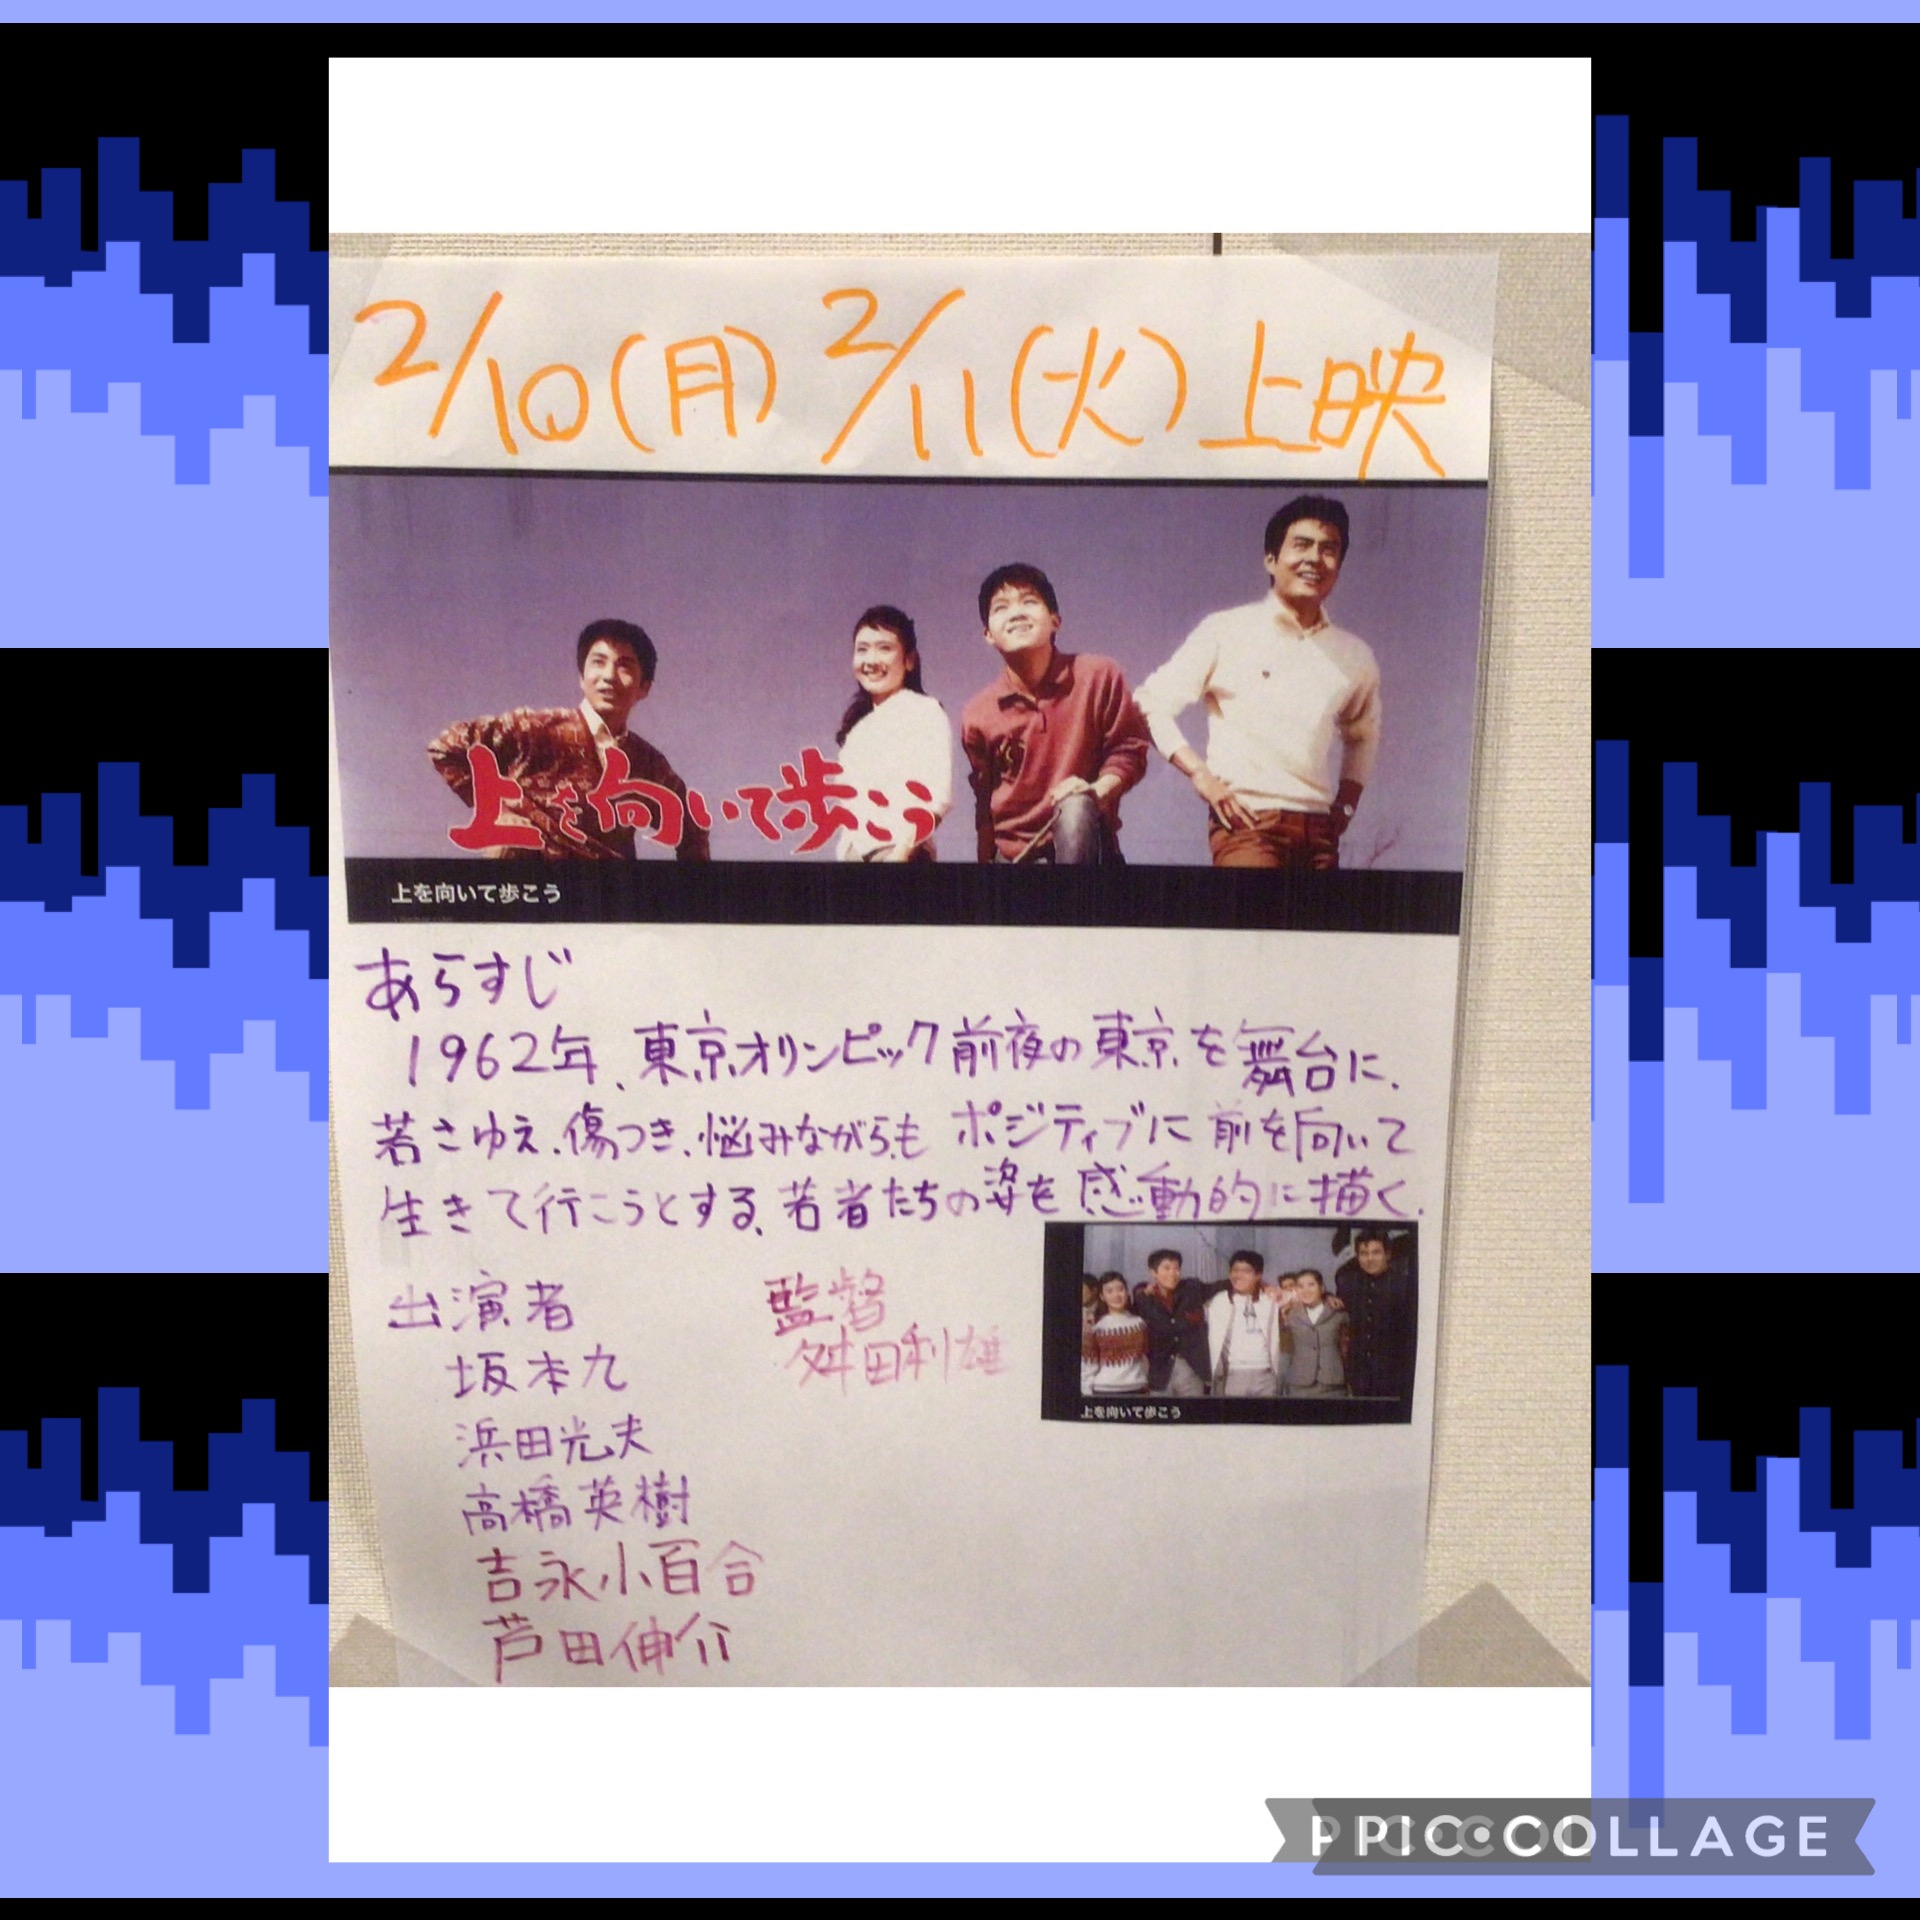 2/10(月) 2/11(火)上映
上を向いて歩こう
上を向いて歩こう
あらすじ
1962年、東京オリンピック前夜の東京を舞台に、
若さゆえ、傷つき、悩みながらも ポジティブに前を向いて
生きて行こうとする、若者たちの姿を感動的に描く.
出演者
坂本九
浜田光夫
高橋英樹
吉永小百合
芦田伸介
監督
舛田利雄
上を向いて歩こう
PIC•COLLAGE